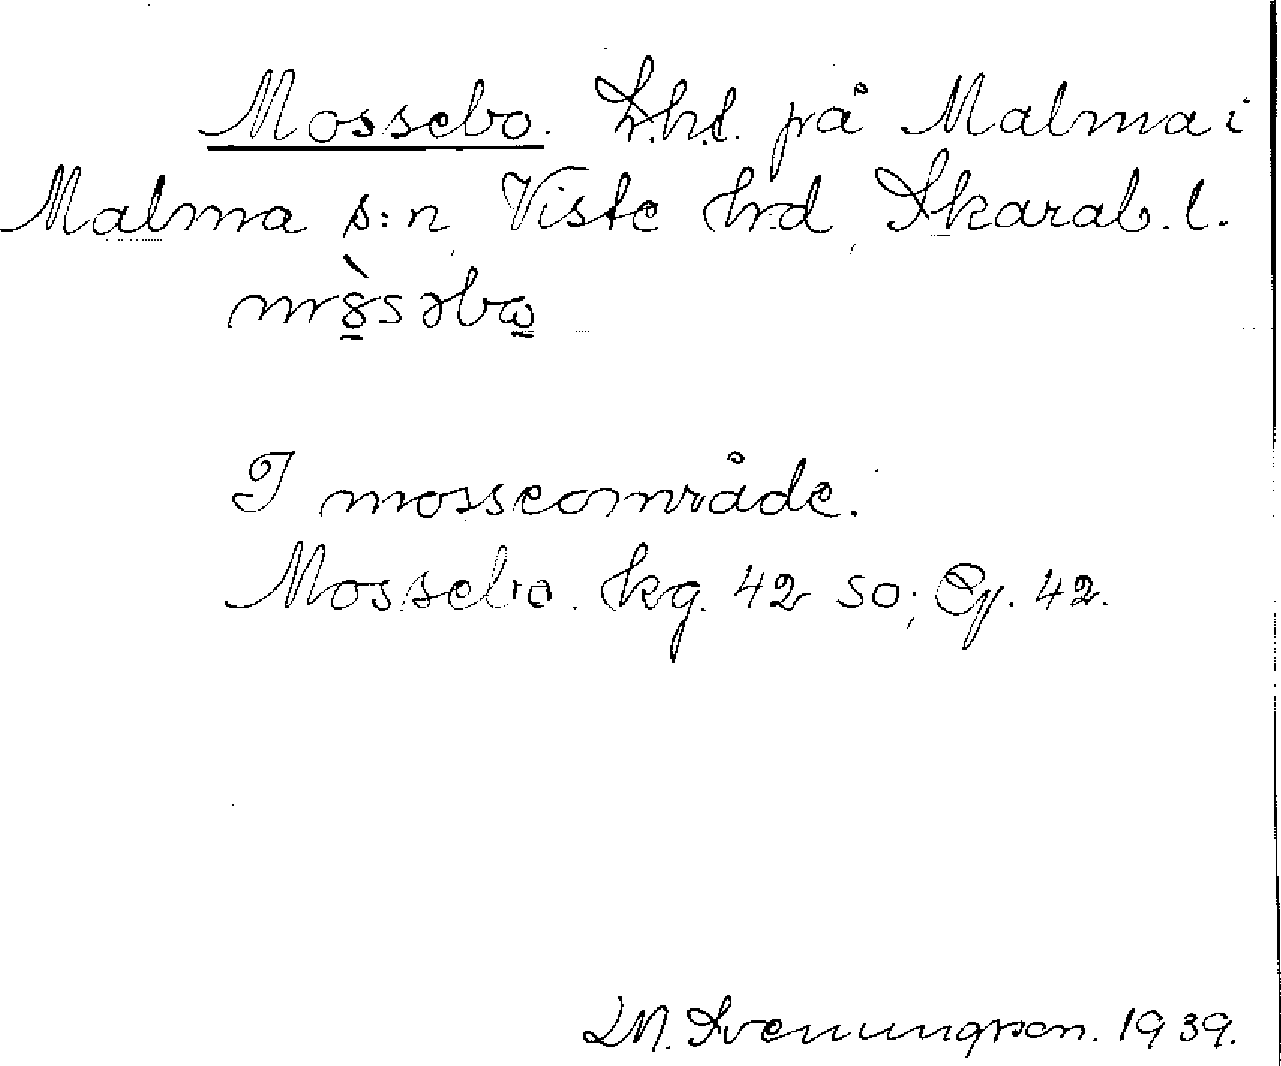 Mossebo. L.h.t. på Malma i
Malma s:n, Viste hrd, Skarab. l.
m8̀səbɷ
I mosseområde.
Mossebo. kg. 42 SO; Gg. 42.
M. Svenungsson. 1939.